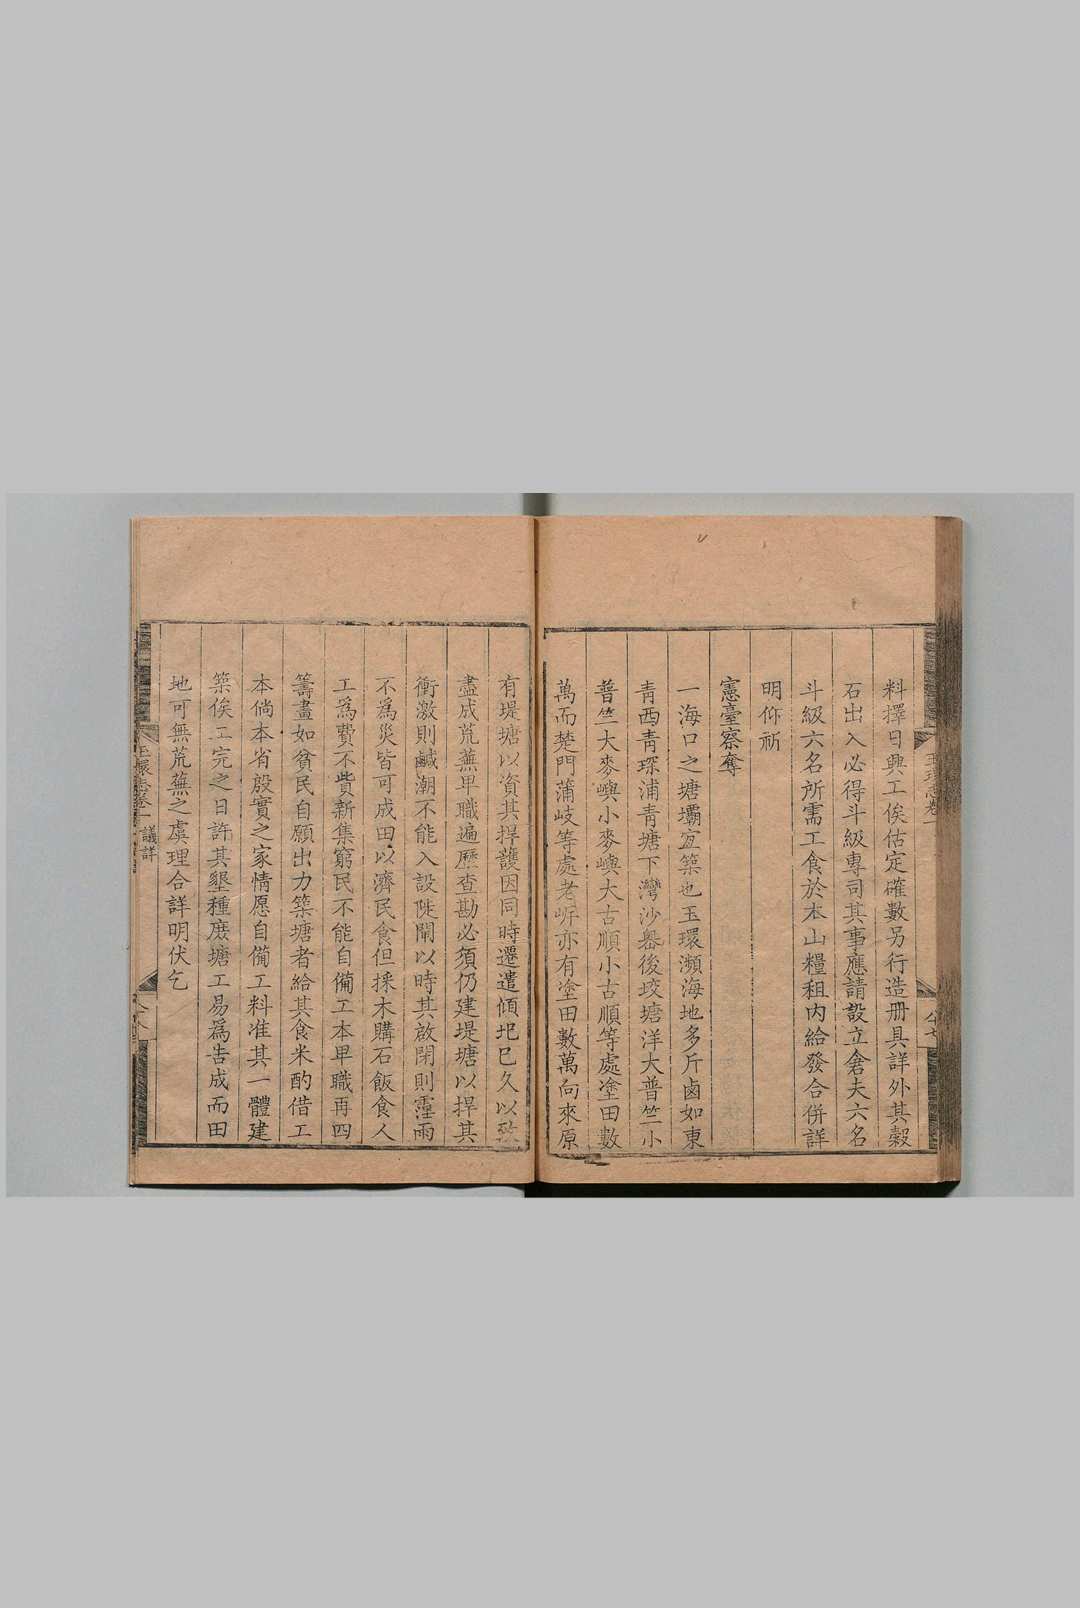 料擇日興工俟估定確數另行造册具詳外其穀
石出入必得斗級專司其事應請設立倉夫六名
斗級六名所需工食於本山糧租内給發合併詳
明仰祈
憲臺察奪
一海口之塘壩宜築也玉環瀕海地多斥鹵如東
青西青琛浦青塘下灣沙嶴後垵塘洋大普竺小
普竺大麥嶼小麥嶼大古順小古順等處塗田數
萬而楚門蒲岐等處老岸亦有塗田數萬向來原
有堤塘以資其捍護因同時遷遣傾圮已久以致
盡成荒蕪卑職遍歷查勘必須仍建堤塘以捍其
衝激則鹹潮不能入設陡閘以時其啟閉則霪雨
不為災皆可成田以濟民食但採木購石飯食人
工為費不貲新集窮民不能自備工本卑職再四
籌畫如貧民自願出力築塘者給其食米酌借工
本倘本省殷實之家情愿自備工料准其一體建
築俟工完之日許其墾種庻塘工易為告成而田
地可無荒蕪之虞理合詳明伏乞
玉環志卷一
議詳
八十七